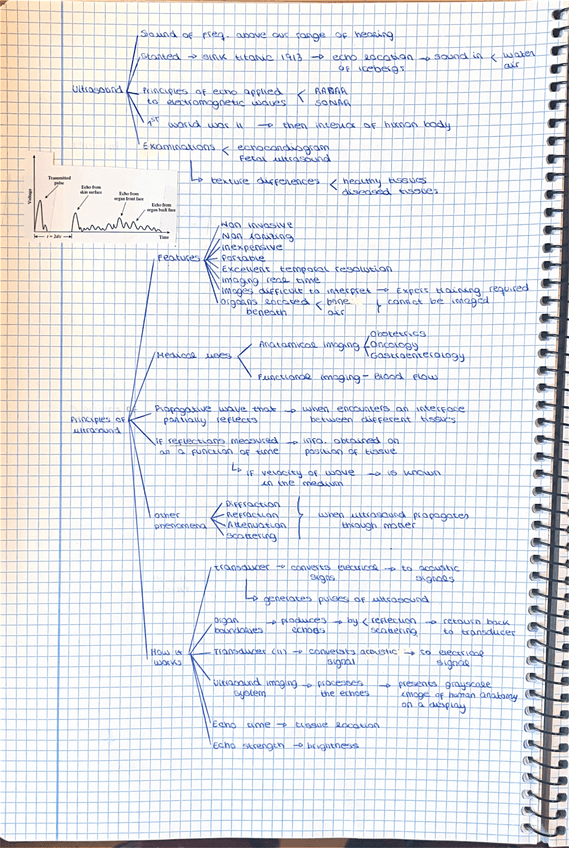 Sound of freq. above our range of hearing
Started → sink titanic 1913 → echo location → sound in < water
of icebergs air
Ultrasound
Principles of echo applied < RADAR
to eletromagnetic waves SONAR
1st world war II → then interior of human body
Examinations < echocardiogram
Fetal ultrasound
↳ texture differences < healthy tissues
diseased tissues
Voltage
Transmitted
pulse
Echo from
skin surface
Echo from
organ front face
Echo from
organ back face
t = 2d/c
Time
Features
Non invasive
Non ionizing
Inexpensive
Portable
Excellent temporal resolution
Imaging real time
Images difficult to interpret → Expert training required
Organs located < bone } cannot be imaged
beneath air
Medical uses
Anatomical imaging
Obstetrics
Oncology
Gastroenterology
Functional imaging - Blood flow
Principles of
ultrasound
Propagative wave that → when encounters an interface
partially reflects between different tissues
If reflections measured → info. obtained on
as a function of time position of tissue
↳ if velocity of wave → is known
in the medium
Other
phenomena
Diffraction
Refraction
Attenuation
Scattering
when ultrasound propagates
through matter
How it
works
transducer → converts electrical → to acoustic
signs signals
↳ generates pulses of ultrasound
Organ → produces → by < reflection → retourn back
boundaries echoes scattering to transducer
Transducer (II) → converts acoustic → to electrical
signal signal
Ultrasound imaging → processes → presents grayscale
system the echoes image of human anatomy
on a display
Echo time → tissue location
Echo strength → brightness